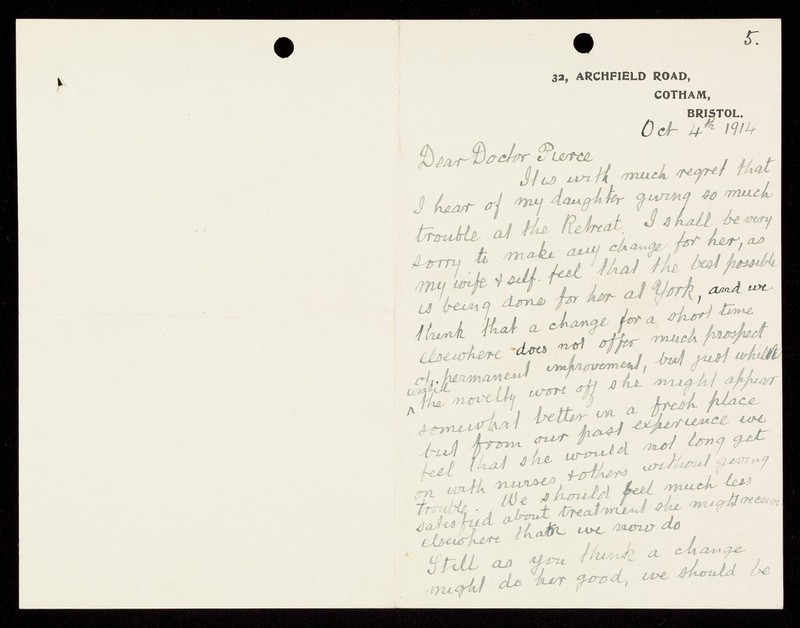 5.
32, ARCHFIELD ROAD,
COTHAM,
BRISTOL.
Oct 4th 1914
Dear Doctor Pierce
It is with much regret that
I hear of my daughter giving so much
trouble at the Retreat. I shall be very
sorry to make any change for her, as
my wife & self feel that the best possible
is being done for her at York, and we
think that a change for a short time
elsewhere does not offer much prospect
of permanent improvement, but just whilst
until
the novelty wore off she might appear
somewhat better in a fresh place
but from our past experience we
feel that she would not long get
on with nurses & others without giving
trouble. We should feel much less
satisfied about treatment she might receive
elsewhere than we now do
Still as you think a change
might do her good, we should be